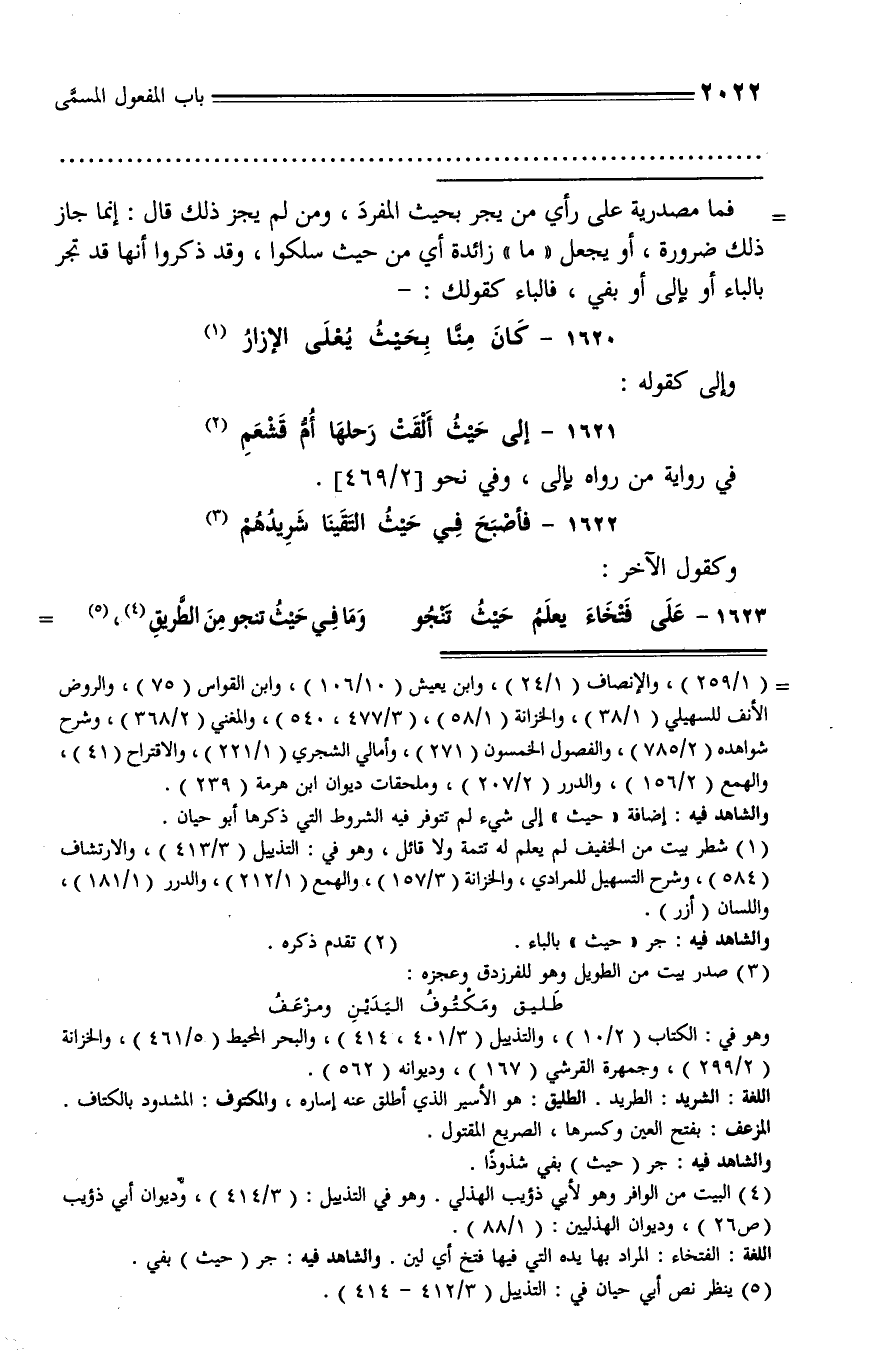 ٢٠٢٢ باب المفعول المسمَّى
= فما مصدرية على رأي من يجر بحيث المفردَ ، ومن لم يجز ذلك قال : إنما جاز
ذلك ضرورة ، أو يجعل « ما » زائدة أي من حيث سلكوا ، وقد ذكروا أنها قد تجر
بالباء أو بإلى أو بفي ، فالباء كقولك : –
١٦٢٠ – كَانَ مِنَّا بِحَيْثُ يُعْلَى الإزارُ (١)
وإلى كقوله :
١٦٢١ – إلى حَيْثُ أَلْقَتْ رَحلهَا أُمُّ قَشْعَمِ (٢)
في رواية من رواه بإلى ، وفي نحو [٤٦٩/٢] .
١٦٢٢ – فأصْبَحَ فِي حَيْثُ التَقَينَا شَرِيدُهُمْ (٣)
وكقول الآخر :
١٦٢٣ – عَلَى فَتْخَاءَ يعلَمُ حَيْثُ تَنْجُو وَمَا فِي حَيْثُ تنجو مِنَ الطَّريقِ (٤) ، (٥) =
= ( ٢٥٩/١ ) ، والإنصاف ( ٢٤/١ ) ، وابن يعيش ( ١٠٦/١٠ ) ، وابن القواس ( ٧٥ ) ، والروض
الأنف للسهيلي ( ٣٨/١ ) ، والخزانة ( ٥٨/١ ) ، ( ٤٧٧/٣ ، ٥٤٠ ) ، والمغني ( ٣٦٨/٢ ) ، وشرح
شواهده ( ٧٨٥/٢ ) ، والفصول الخمسون ( ٢٧١ ) ، وأمالي الشجري ( ٢٢١/١ ) ، والاقتراح ( ٤١ ) ،
والهمع ( ١٥٦/٢ ) ، والدرر ( ٢٠٧/٢ ) ، وملحقات ديوان ابن هرمة ( ٢٣٩ ) .
والشاهد فيه : إضافة « حيث » إلى شيء لم تتوفر فيه الشروط التي ذكرها أبو حيان .
(١) شطر بيت من الخفيف لم يعلم له تتمة ولا قائل ، وهو في : التذييل ( ٤١٣/٣ ) ، والارتشاف
( ٥٨٤ ) ، وشرح التسهيل للمرادي ، والخزانة ( ١٥٧/٣ ) ، والهمع ( ٢١٢/١ ) ، والدرر ( ١٨١/١ ) ،
واللسان ( أزر ) .
والشاهد فيه : جر « حيث » بالباء . (٢) تقدم ذكره .
(٣) صدر بيت من الطويل وهو للفرزدق وعجزه :
طَلـيـق ومَـكْتُـوفُ اليَدَيْنِ ومزْعَفُ
وهو في : الكتاب ( ١٠/٢ ) ، والتذييل ( ٤٠١/٣ ، ٤١٤ ) ، والبحر المحيط ( ٤٦١/٥ ) ، والخزانة
( ٢٩٩/٢ ) ، وجمهرة القرشي ( ١٦٧ ) ، وديوانه ( ٥٦٢ ) .
اللغة : الشريد : الطريد . الطليق : هو الأسير الذي أطلق عنه إساره ، والمكتوف : المشدود بالكتاف .
المزعف : بفتح العين وكسرها ، الصريع المقتول .
والشاهد فيه : جر ( حيث ) بفي شذوذًا .
(٤) البيت من الوافر وهو لأبي ذؤيب الهذلي . وهو في التذييل : ( ٤١٤/٣ ) ، وديوان أبي ذؤيب
(ص٢٦ ) ، وديوان الهذليين : ( ٨٨/١ ) .
اللغة : الفتخاء : المراد بها يده التي فيها فتخ أي لين . والشاهد فيه : جر ( حيث ) بفي .
(٥) ينظر نص أبي حيان في : التذييل ( ٤١٢/٣ – ٤١٤ ) .